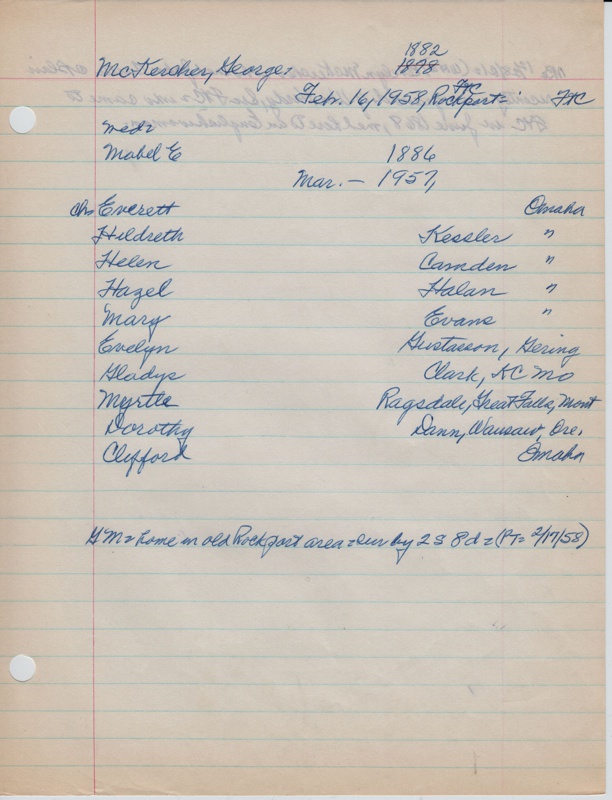 1882
McKercher, George, 1878
Feb. 16, 1958, Rockport = FtC FtC
med:
Mabel E 1886
Mar. — 1957,
chs Everett Omaha
Hildreth Kessler "
Helen Camden "
Hazel Halan "
Mary Evans "
Evelyn Gustasson, Gering
Gladys Clark, KC Mo
Myrtle Ragsdale, Great Falls, Mont
Dorothy Dann, Wausaw, Ore.
Clifford Omaha
GM = home in old Rockport area = sur by 2 S 8 d = (PT = 2/17/58)